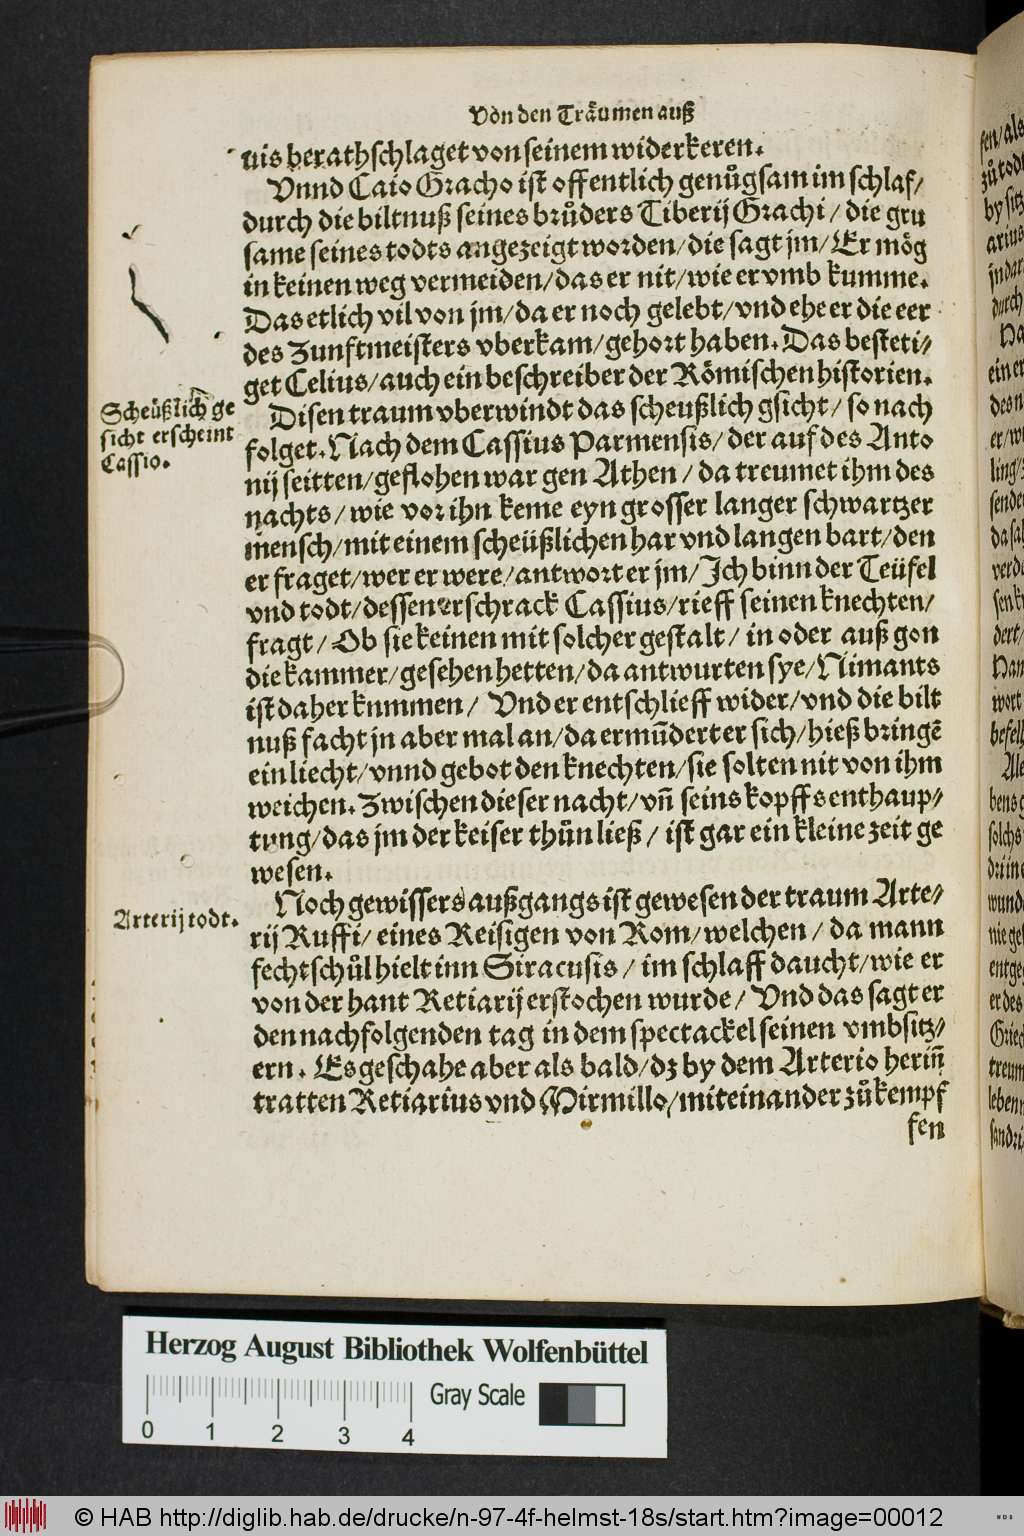 Von den Träumen auß
nis berathschlaget von seinem widerkeren.
Vnnd Caio Gracho ist offentlich genůgsam im schlaf/
durch die biltnuß seines brůders Tiberij Grachi / die gru
same seines todts angezeigt worden/die sagt jm/ Er mög
in keinen weg vermeiden/das er nit/wie er vmb kumme.
Das etlich vil von jm/da er noch gelebt/vnd ehe er die eer
des Zunftmeisters vberkam/gehort haben. Das besteti⸗
get Celius/auch ein beschreiber der Römischen historien.
Scheüßlich ge
sicht erscheint
Cassio.
Disen traum vberwindt das scheußlich gsicht/ so nach
folget. Nach dem Cassius Parmensis/ der auf des Anto
nij seitten/geflohen war gen Athen / da treumet ihm des
nachts/ wie vor ihn keme eyn grosser langer schwartzer
mensch/mit einem scheüßlichen har vnd langen bart/den
er fraget/wer er were/antwort er jm/Ich binn der Teüfel
vnd todt/dessen erschrack Cassius/rieff seinen knechten/
fragt/ Ob sie keinen mit solcher gestalt/ in oder auß gon
die kammer/gesehen hetten/da antwurten sye/Nimants
ist daher kummen/ Vnd er entschlieff wider/vnd die bilt
nuß facht jn aber mal an/da ermūdert er sich/hieß bringē
ein liecht/vnnd gebot den knechten/sie solten nit von ihm
weichen. Zwischen dieser nacht/vñ seins kopffs enthaup⸗
tung/das jm der keiser thůn ließ / ist gar ein kleine zeit ge
wesen.
Arterij todt.
Noch gewissers außgangs ist gewesen der traum Arte⸗
rij Ruffi/ eines Reisigen von Rom/welchen / da mann
fechtschůl hielt inn Siracusis / im schlaff daucht/wie er
von der hant Retiarij erstochen wurde/ Vnd das sagt er
den nachfolgenden tag in dem spectackel seinen vmbsitz⸗
ern. Es geschahe aber als bald/dz by dem Arterio herin̄
tratten Retiarius vnd Mirmillo/miteinander zůkempf
fen
fen/als
zů todt
by sitz
arius
durch
ein er
des n
er/w
ling/
senden
da sah
verde
sen kn
dert/
wort
befelh
bens g
solchs
drüne
wund
nie ge
entge
er des
Griec
treum
leben
sandri
Herzog August Bibliothek Wolfenbüttel
0 1 2 3 4
Gray Scale
© HAB http://diglib.hab.de/drucke/n-97-4f-helmst-18s/start.htm?image=00012